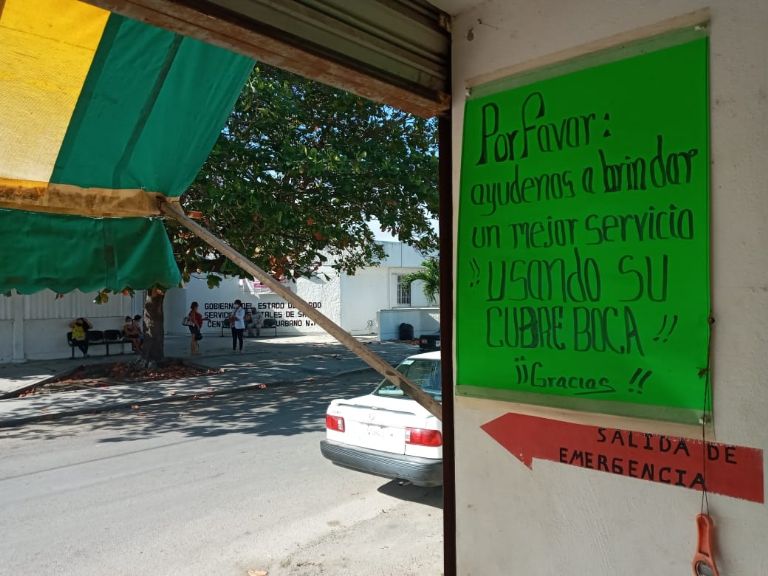 Por favor:
ayudenos a brindar
un mejor servicio
!! USANDO SU
CUBRE BOCA !!
¡¡Gracias!!
SALIDA DE
EMERGENCIA
GOBIERNO DEL ESTADO DE
SERVIC
URBANO